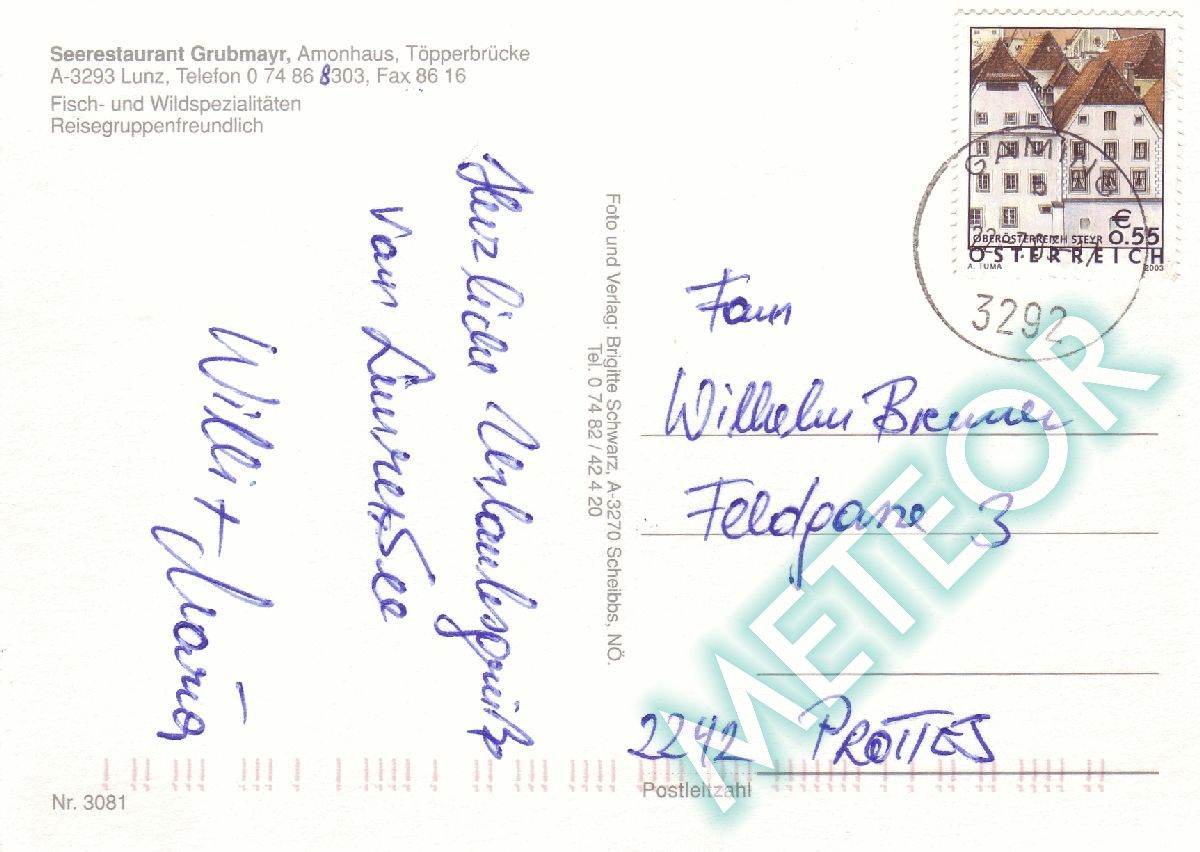 Seerestaurant Grubmayr, Amonhaus, Töpperbrücke
A-3293 Lunz, Telefon 0 74 86 8303, Fax 86 16
Fisch- und Wildspezialitäten
Reisegruppenfreundlich
Herzliche Urlaubsgrüße
vom Lunzer See
Willi + Maria
Foto und Verlag: Brigitte Schwarz, A-3270 Scheibbs, NÖ.
Tel. 0 74 82 / 42 4 20
GAMING
3292
€
0.55
OBERÖSTERREICH STEYR
ÖSTERREICH
A. TUMA
2003
Fam
Wilhelm
Feldgasse 3
2242 PROTTES
Postleitzahl
Nr. 3081
METEOR